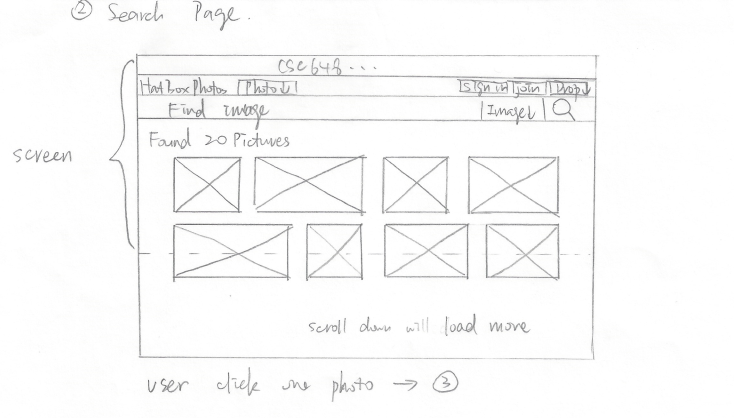 ② Search Page.
CSC 648 ...
HatBox Photos Photo↓ Sign in Join Drop↓
Find image Image↓
Found 20 Pictures
screen
scroll down will load more
user click one photo → ③